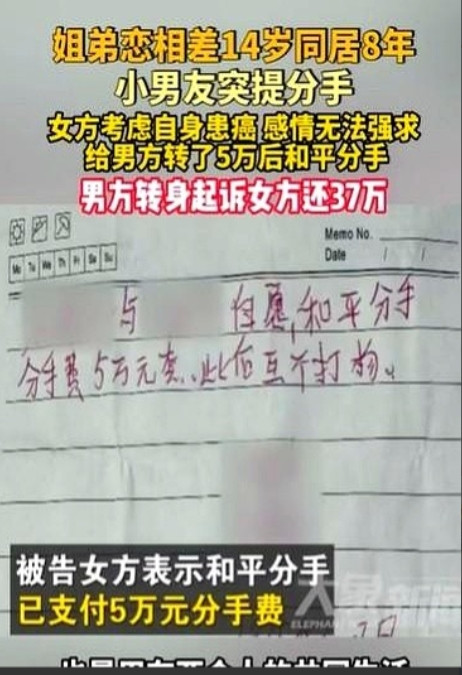 姐弟恋相差14岁同居8年
小男友突提分手
女方考虑自身患癌 感情无法强求
给男方转了5万后和平分手
男方转身起诉女方还37万
Memo No.
Date / /
Mo Tu We Th Fr Sa Su
与 自愿,和平分手
分手费5万元整.此后互不打扰.
被告女方表示和平分手
已支付5万元分手费
大象新闻
ELEPHANT